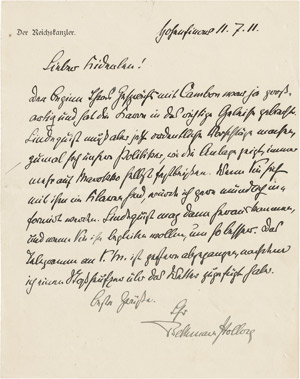 Der Reichskanzler.
Hohenfinow 11.7.11.
Lieber Kiderlen!
Der Beginn Ihres Gesprächs mit Cambon war ja groß-
artig und hat die Sachen in das richtige Geleise gebracht.
Lindequist muß aber jetzt ordentliche Vorschläge machen,
zumal sich unsere Politiker, wie die Anlage zeigt, immer
mehr auf Marokko selbst
mit ihm im Klaren sind, würde ich gern mündlich in-
formiert werden. Lindequist mag dann herauskommen,
und wenn Sie ihn begleiten wollen, um so besser. Das
Telegramm an S. M. ist gestern abgegangen, nachdem
ich einen Stoßseufzer über das Wetter zugefügt habe.
Beste Grüße.
Ihr
Bethmann Hollweg